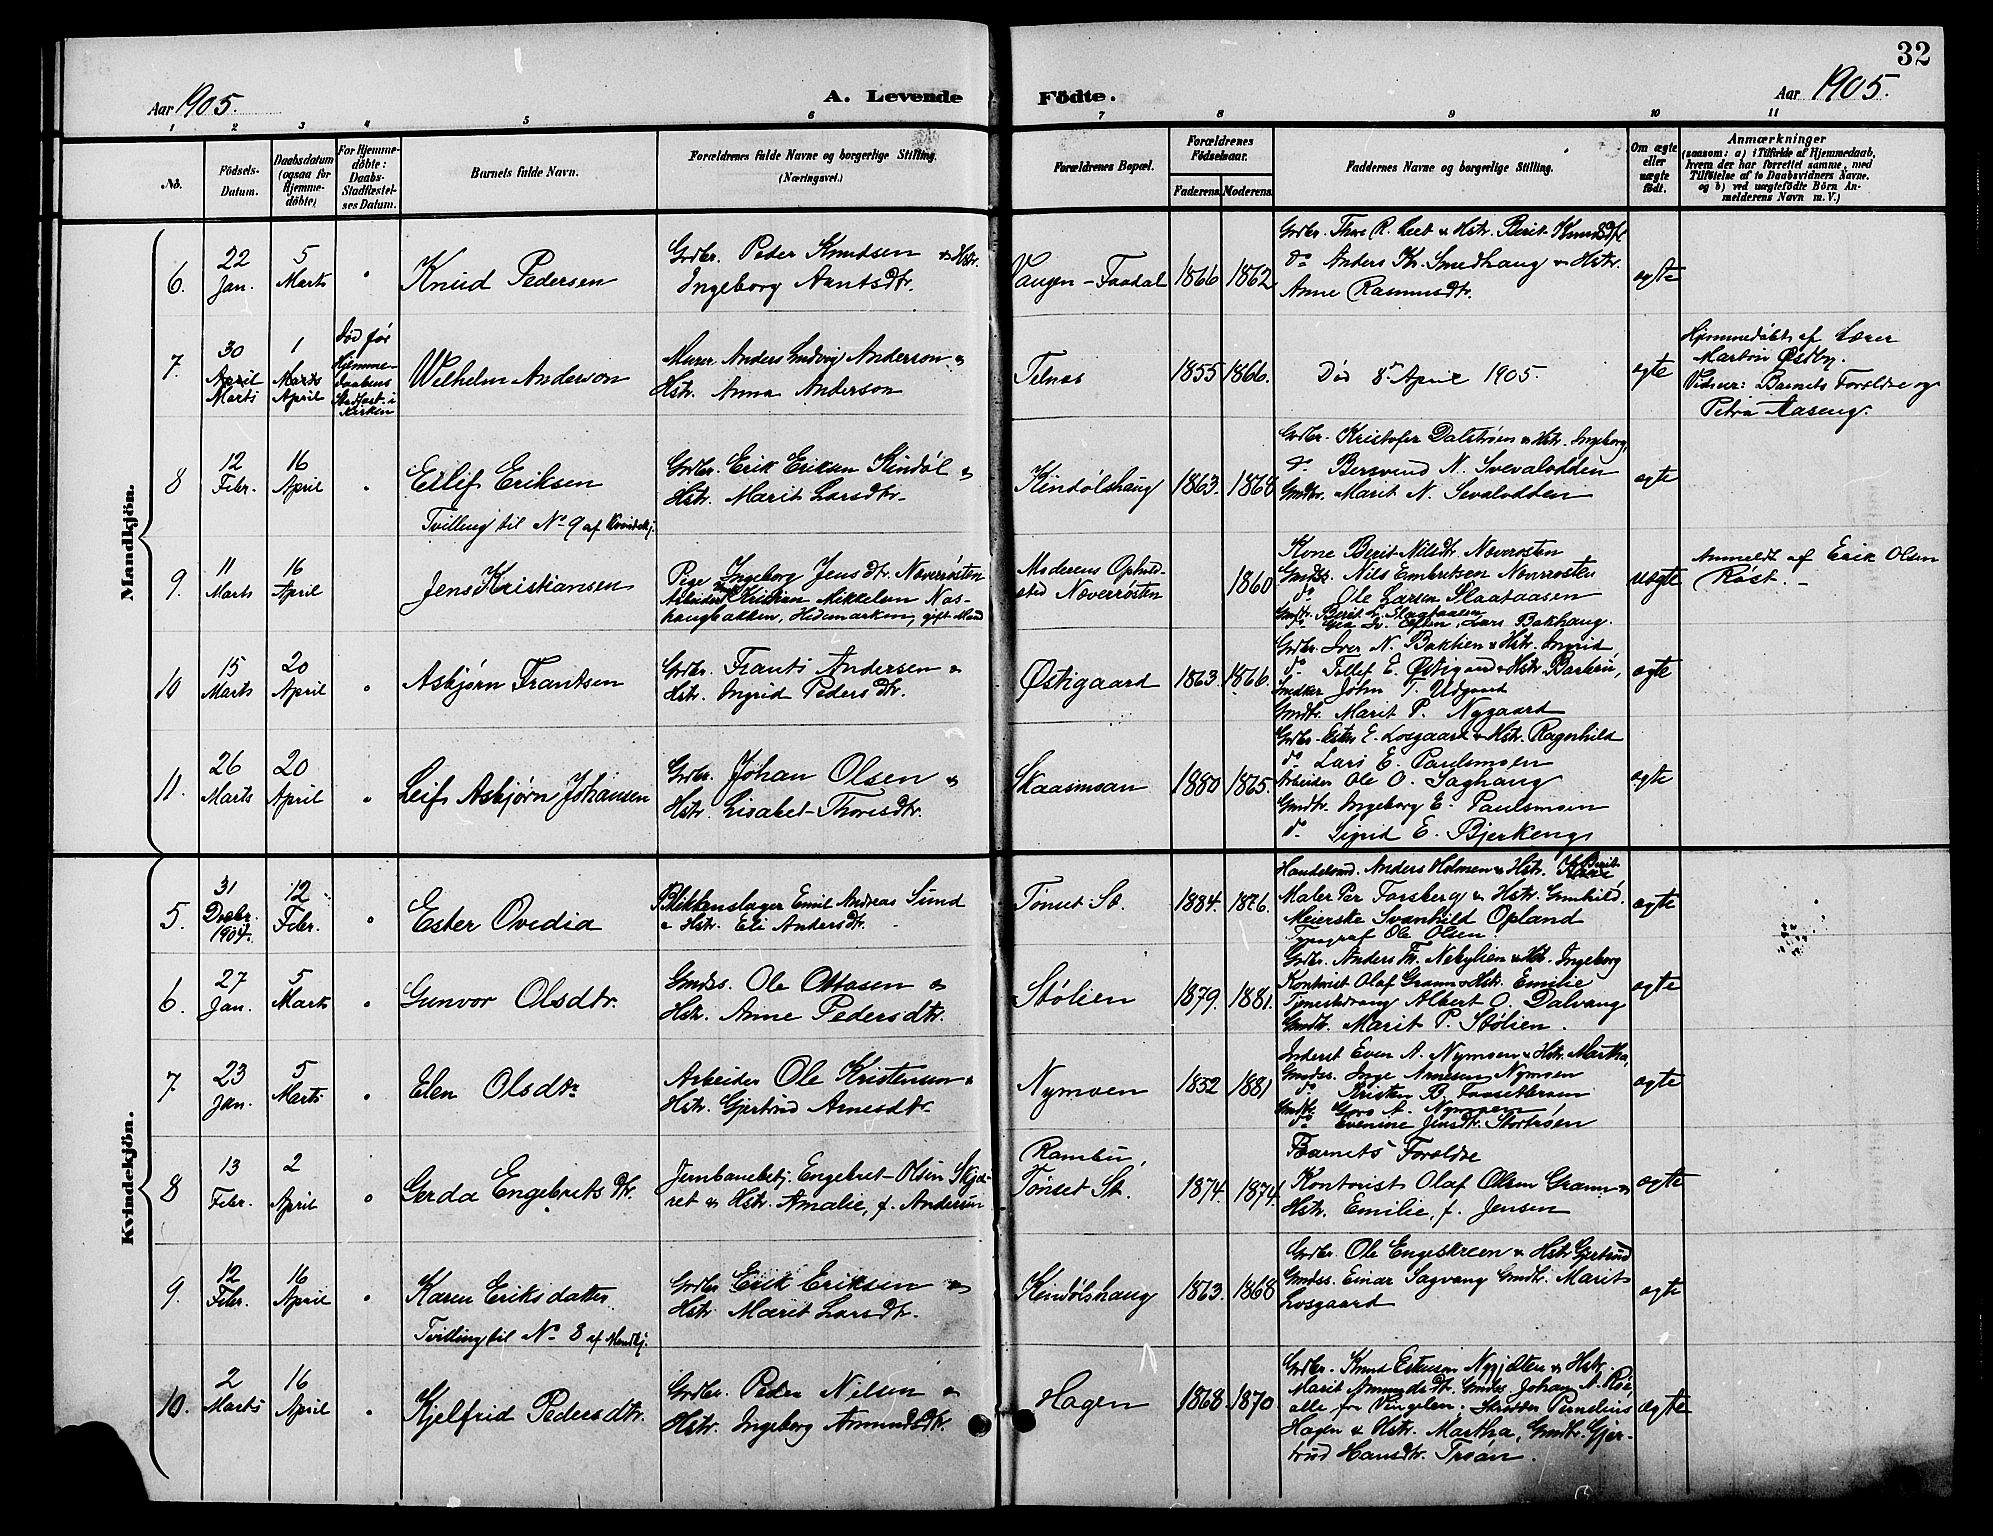 32
Aar 1905.
A. Levende Födte.
Aar 1905.
1 2 3 4 5 6 7 8 9 10 11
No.
Födsels-Datum.
Daabsdatum (ogsaa for Hjemme-döbte)
For Hjemme-döbte: Daabs-Stadfæstel-ses Datum.
Barnets fulde Navn.
Forældrenes fulde Navne og borgerlige Stilling.
(Næringsvei.)
Forældrenes Bopæl.
Forældrenes Födselsaar.
Faderens. Moderens.
Faddernes Navne og borgerlige Stilling.
Om ægte eller uægte födt.
Anmærkninger
(saasom: a) i Tilfælde af Hjemmedaab,
hvem der har forrettet samme, med
Tilföielse af to Daabsvidners Navne.
og b) ved uægtefödte Börn An-
melderens Navn m. V.)
Mandkjön.
6. 22 Jan. 5 Marts
Knud Pedersen
Grdbr. Peder Knudsen & Hstr.
Ingeborg Arntsdtr.
Vangen-Faadal 1866 1862
Grdbr. Thore R. Leet & Hstr. Berit Knudsdtr.
do Anders Kr. Smedhaug & Hstr.
Anne Rasmusdtr.
ægte
7. 30 April Marts 1 Marts April
Død før
Hjemme-
daabens
Stadfæst. i
Kirken
Wilhelm Anderson
Murer Anders Ludvig Anderson &
Hstr. Anna Anderson
Telnes 1855 1866.
Død 8de April 1905.
ægte
Hjemmedøbt af Lærer
Martin Østby.
Vidner: Barnets Forældre og
Petra Aaseng.
8 12 Febr. 16 April
Eilif Eriksen
Tvilling til No 9 af Kvindekj.
Grdbr. Erik Eriksen Kindøl &
Hstr. Marit Larsdtr.
Kindølshaug 1863. 1868
Grdbr. Kristofer Dalstrøm & Hstr. Ingeborg,
do Bersvend N. Svevalodden
Gmdtr. Marit N. Sevalodden
ægte
9. 11 Marts 16 April
Jens Kristiansen
Pige Ingeborg Jensdtr. Næverrøsten
Arbeider Kristian Mikkelsen Næs-
haugbakken, Hedemarken, gift Mand
Moderens Ophold-
sted Næverrøsten 1860
Kone Berit Nilsdtr. Næverrøsten
Gmdss. Nils Embretsen Næverrøsten
do Ole Larsen Slaataasen
Gmdtr. Berit L. Slaataasen
Lars Bakhaug.
uægte
Anmeldt af Erik Olsen
Røst.
10 15 Marts 20 April
Asbjørn Frantsen
Grdbr. Frants Andersen &
Hstr. Ingrid Pedersdtr.
Østigaard 1863. 1866.
Grdbr. Iver N. Baklien & Hstr. Ingrid,
do Tollef E. Østigaard & Hstr. Barbru,
Snedker John T. Udgaard
Gmdtr. Marit P. Nygaard
ægte
11. 26 Marts 20 April
Leif Asbjørn Johansen
Grdbr. Johan Olsen &
Hstr. Lisabet Thoresdtr.
Skaasmoen 1880 1865.
Grdbr. Ester E. Losgaard & Hstr. Ragnhild
do Lars E. Paulsmoen
Arbeider Ole O. Saghaug
Gmdtr. Ingeborg E. Paulsmoen
do Sigrid E. Bjerkeng
ægte
Kvindekjön.
5. 31 Decbr. 1904. 12 Febr.
Ester Ovedia
Blikkenslager Emil Andreas Sund
& Hstr. Eli Andersdtr.
Tønset St. 1884. 1876.
Handelsmd. Anders Holmen & Hstr. Berit
Maler Per Forsberg & Hstr. Gunhild.
Meierske Svanhild Opland
Typograf Ole Olsen.
ægte
6. 27 Jan. 5 Marts
Gunvor Olsdtr.
Gmdss. Ole Ottosen &
Hstr. Anne Pedersdtr.
Stølien 1879. 1881.
Grdbr. Anders Fr. Nebylien & Hst. Ingeborg
Kontorist Olaf Gramm & Hstr. Emilie
Albert O. Dalvang
Gmdtr. Marit P. Stølien.
ægte
7 23 Jan. 5 Marts
Elen Olsdtr
Arbeider Ole Kristensen &
Hstr. Gjertrud Arnesdtr.
Nymoen 1852 1881
Inderst Even A. Nymoen & Hstr. Martha,
Gmdss. Inge Arnesen Nymoen
do Kristen B. Faasetbraaen
Gmdtr. Goro A. Nymoen
do Evenine Jensdtr. Stortrøen
ægte
8 13 Febr. 2 April
Gerda Engebretsdtr.
Jernbanebetj. Engebret Olsen Skjæ-
ret & Hstr. Amalie, f. Andersen
Rambu,
Tønset St. 1874. 1874.
Barnets Forældre
Kontorist Olaf Olsen Gramm &
Hstr. Emilie, f. Jensen
ægte
9. 12 Febr. 16 April
Karen Eriksdatter
Tvilling til No 8 af Mandkj.
Grdbr. Erik Eriksen &
Hstr. Marit Larsdtr.
Kindølshaug 1863. 1868
Grdbr. Ole Engeskreen & Hstr. Gjertrud
Gmdss. Einar Sagvang Gmdtr. Marit
Losgaard
ægte
10. 2 Marts 16 April
Kjelfrid Pedersdtr.
Grdbr. Peder Nilsen &
Hstr. Ingeborg Amundsdtr.
Hagen 1868 1870.
Grdbr. Knud Estensen Nyjelten & Hstr.
Marit Amundsdtr. Gmdss. Johan A. Røe
alle fra Vingelen. Skrædder Pernelius
Hagen & Hstr. Martha, Gmdtr. Gjer-
trud Hansdtr. Trøan.
ægte